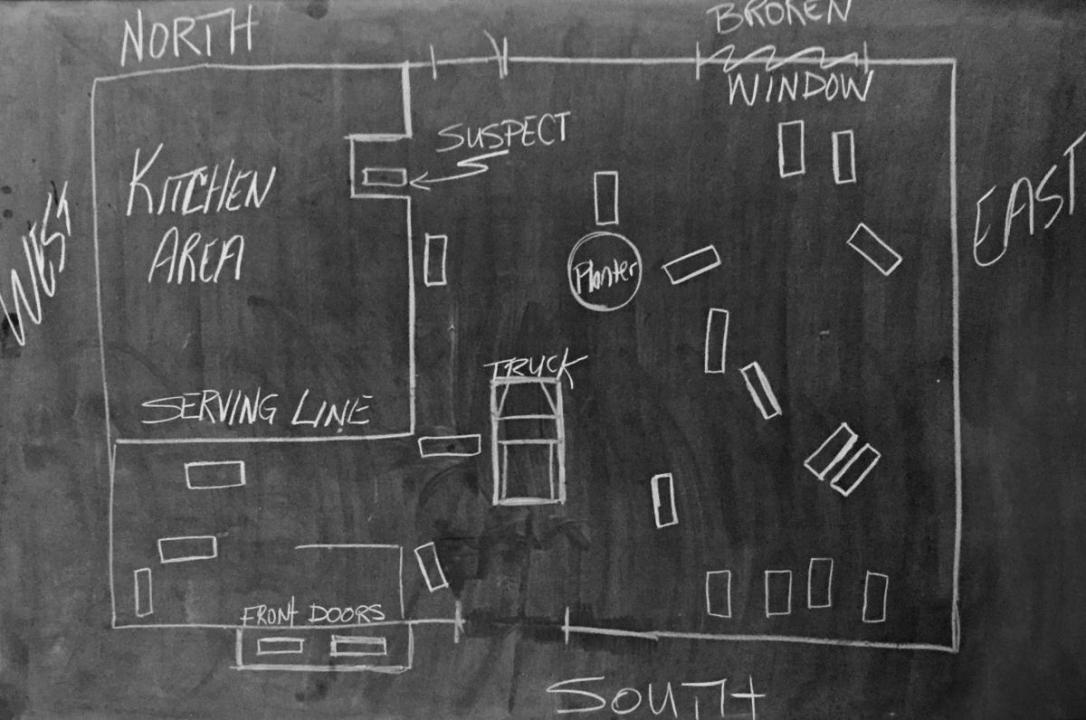 BROKEN
NORTH
WINDOW
SUSPECT
KITCHEN
AREA
WEST
EAST
Planter
TRUCK
SERVING LINE
FRONT DOORS
SOUTH